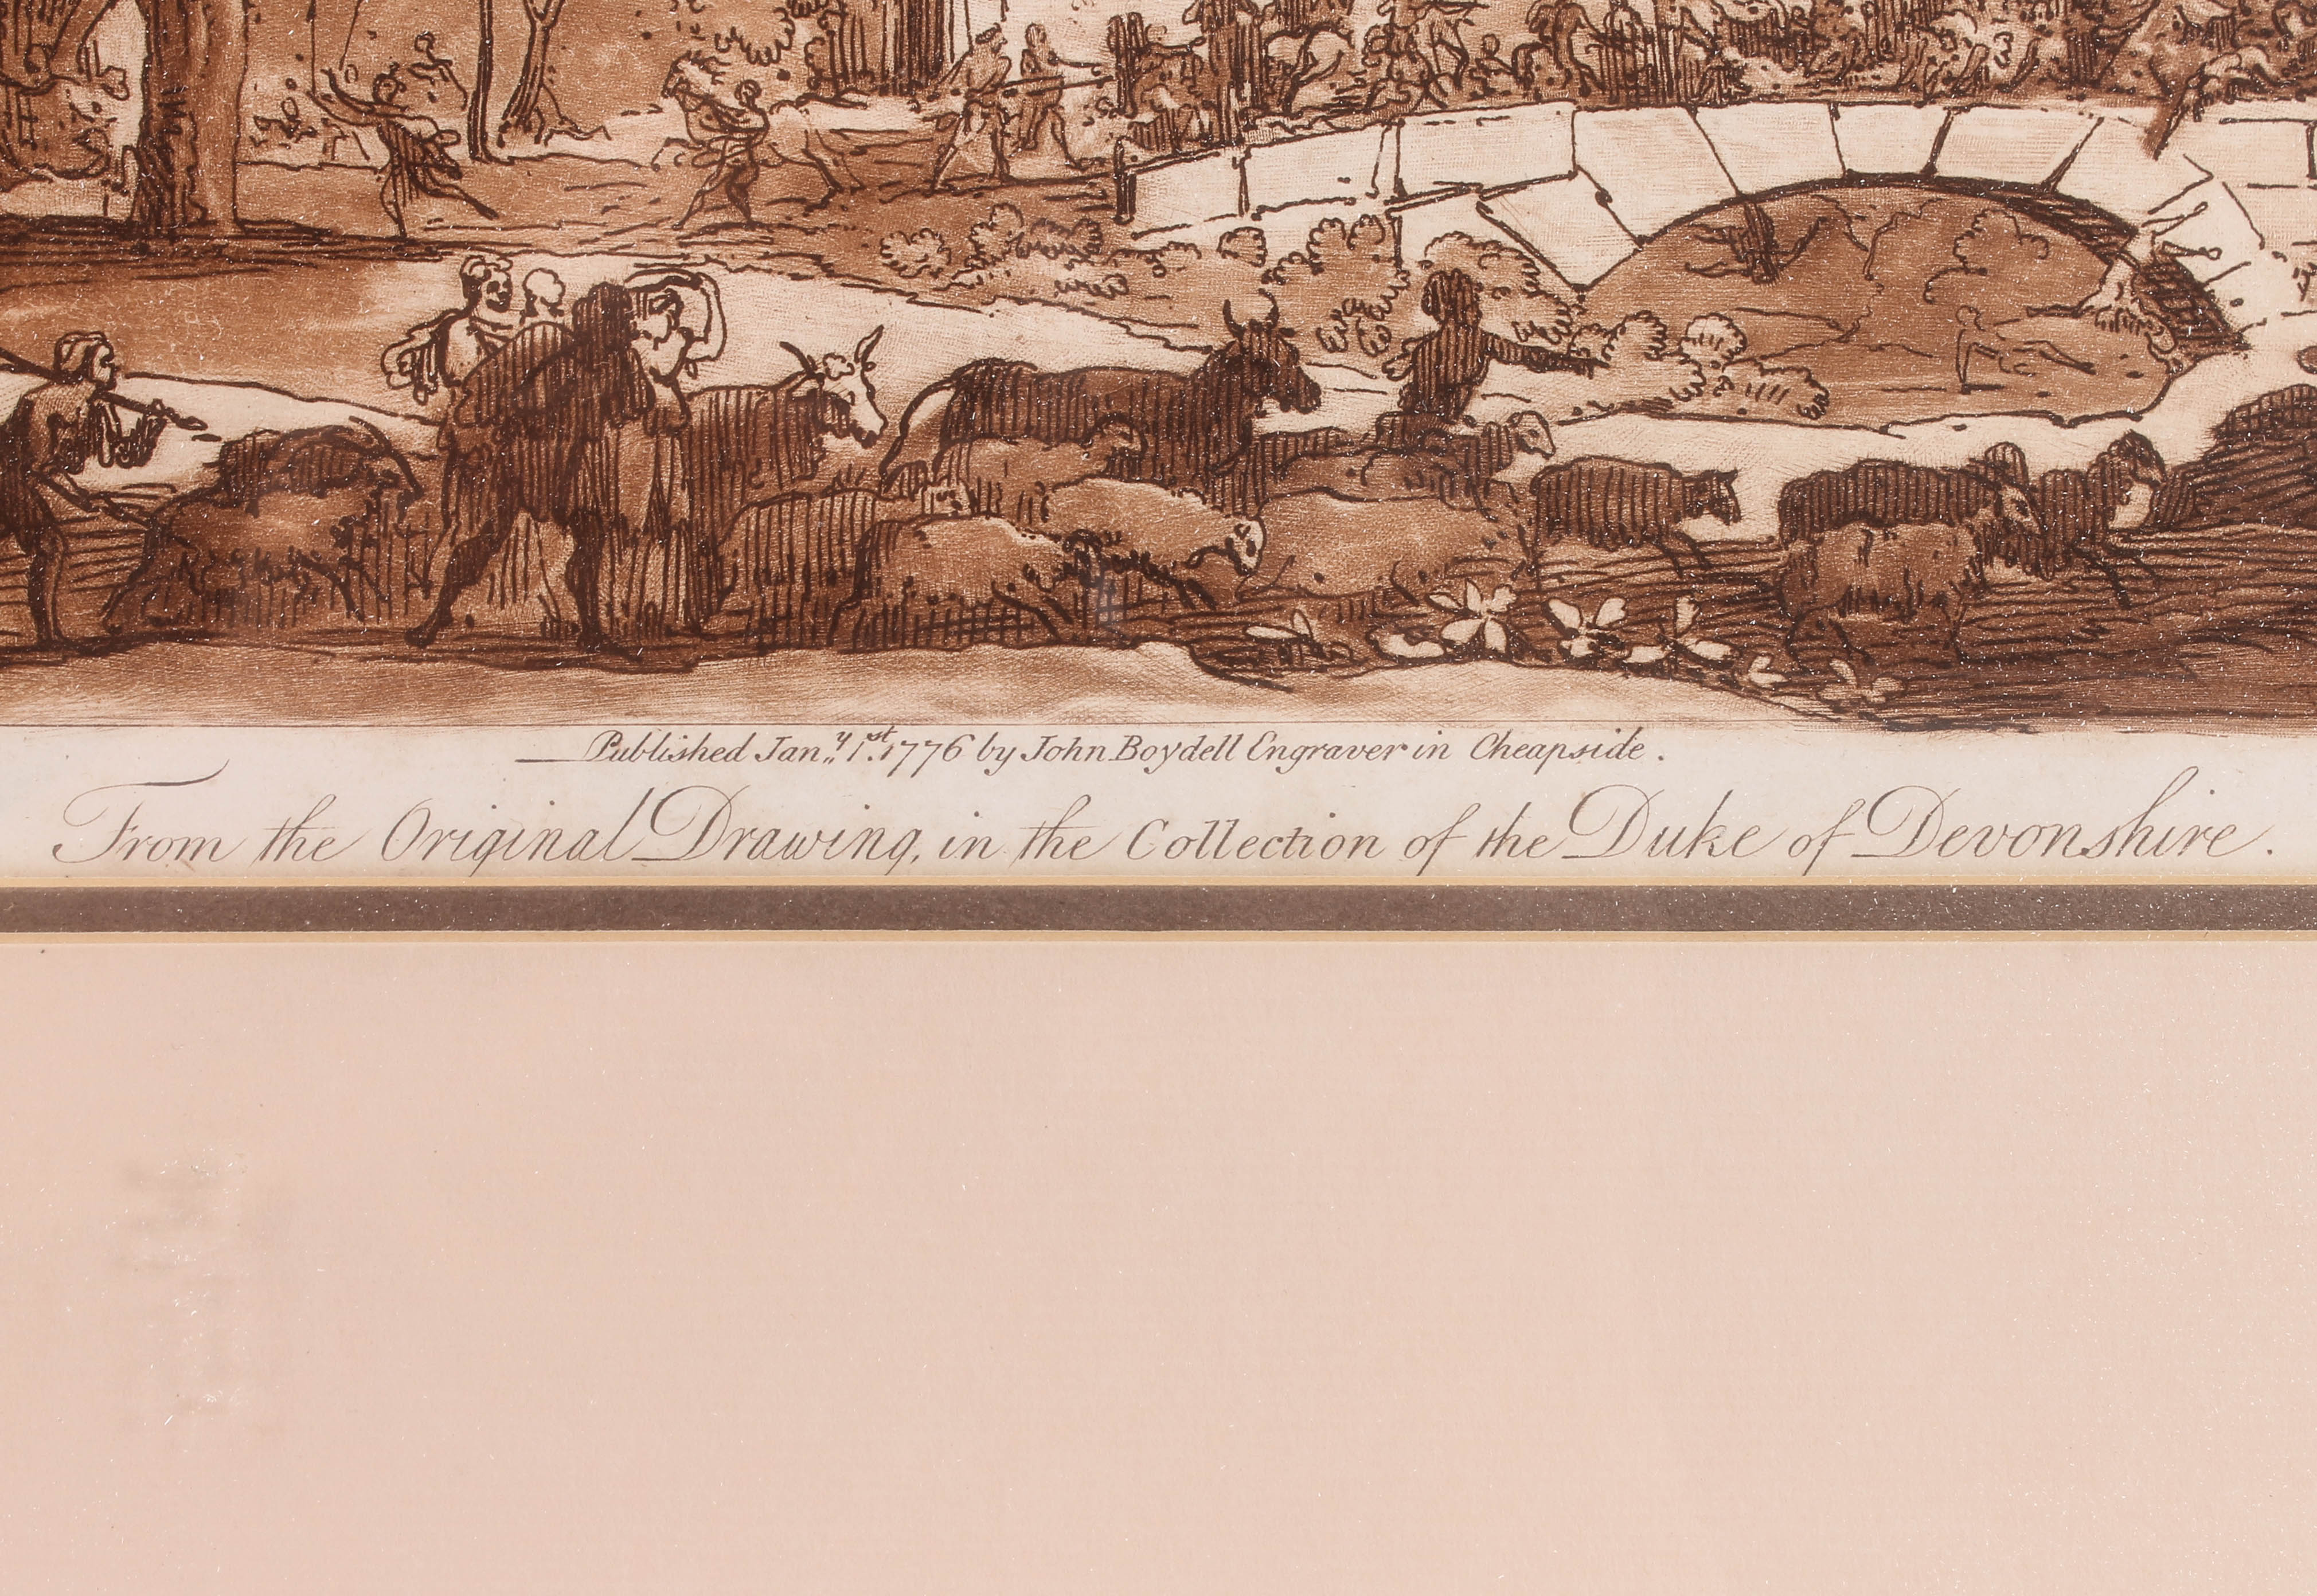 Published Jan.y 1st. 1776 by John Boydell Engraver in Cheapside.
From the Original Drawing, in the Collection of the Duke of Devonshire.